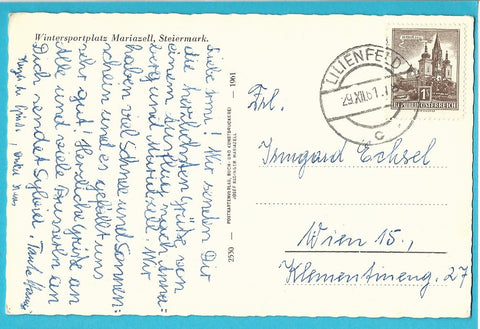 Wintersportplatz Mariazell, Steiermark.
Liebe Irmi! Wir senden Dir
die herzlichsten Grüße von
einem Ausflug nach Anna-
berg und Mariazell. Wir
haben viel Schnee und Sonnen-
schein und es gefällt uns
sehr gut! Herzliche Grüße an
alle und viele Busserln an
Dich sendet Sylvia. + Tante
2550 — POSTKARTENVERLAG, BUCH- UND KUNSTDRUCKEREI — 1961
JOSEF MARIAZELL
LILIENFELD
29.XII.61
C
1 S
REPUBLIK ÖSTERREICH
Frl.
Irmgard Echsel
Wien 15.,
Klementineng. 27